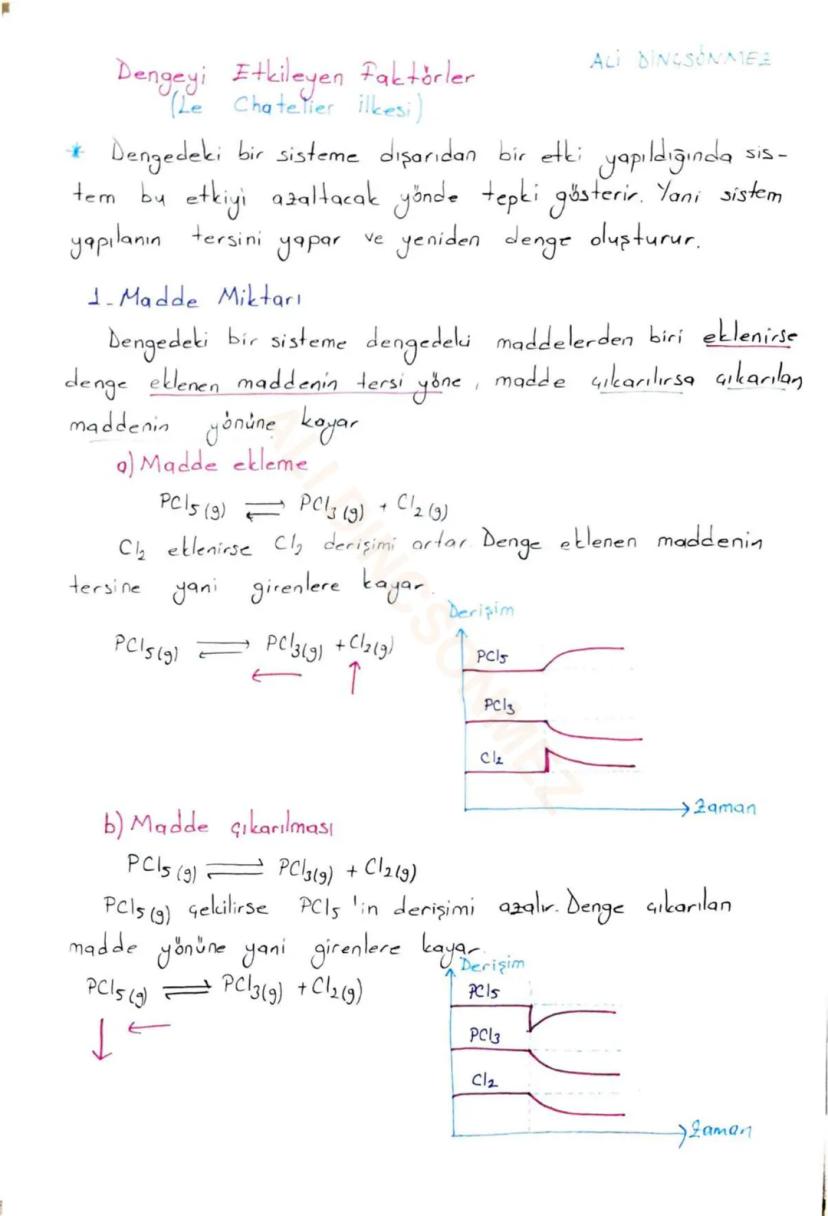 ALİ DİNÇSÖNMEZ
Dengeyi Etkileyen Faktörler
(Le Chatelier ilkesi)
* Dengedeki bir sisteme dışarıdan bir etki yapıldığında sis-
tem bu etkiyi azaltacak yönde tepki gösterir. Yani sistem
yapılanın tersini yapar ve yeniden denge oluşturur.
1- Madde Miktarı
Dengedeki bir sisteme dengedeki maddelerden biri eklenirse
denge eklenen maddenin tersi yöne, madde çıkarılırsa çıkarılan
maddenin yönüne kayar
a) Madde ekleme
PCl₅(g) ⇌ PCl₃(g) + Cl₂(g)
Cl₂ eklenirse Cl₂ derişimi artar. Denge eklenen maddenin
tersine yani girenlere kayar.
Derişim
PCl₅(g) ⇌ PCl₃(g) + Cl₂(g)
← ↑
PCl₅
PCl₃
Cl₂
Zaman
b) Madde çıkarılması
PCl₅(g) ⇌ PCl₃(g) + Cl₂(g)
PCl₅(g) çekilirse PCl₅'in derişimi azalır. Denge çıkarılan
madde yönüne yani girenlere kayar.
Derişim
PCl₅(g) ⇌ PCl₃(g) + Cl₂(g)
↓ ←
PCl₅
PCl₃
Cl₂
Zaman
ALI DINCSONMEZ